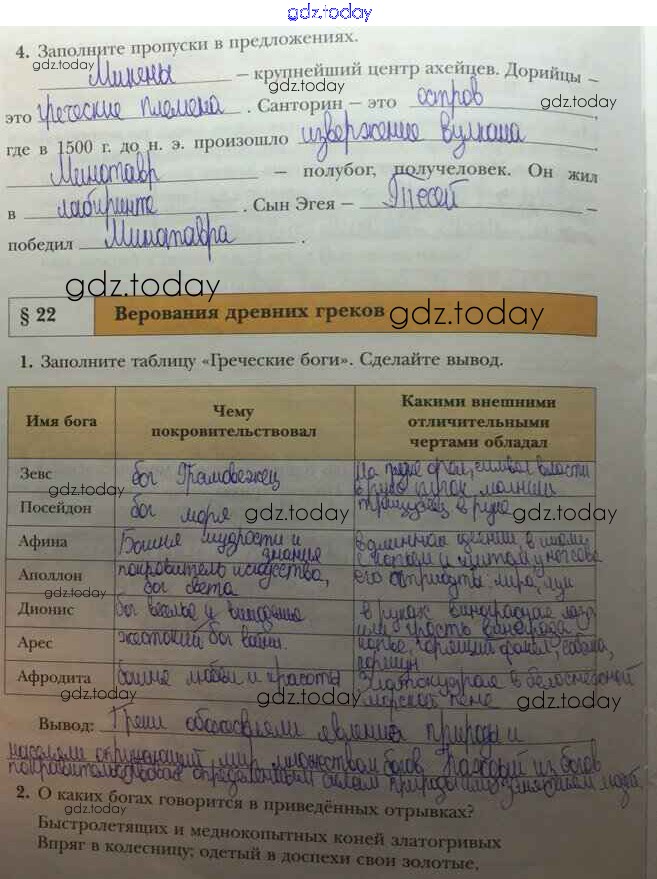 gdz.today
4. Заполните пропуски в предложениях.
Микены – крупнейший центр ахейцев. Дорийцы –
это греческие племена . Санторин – это остров ,
где в 1500 г. до н. э. произошло извержение вулкана .
Минотавр – полубог, получеловек. Он жил
в лабиринте . Сын Эгея – Тесей –
победил Минотавра .
gdz.today
gdz.today
gdz.today
§ 22 Верования древних греков gdz.today
1. Заполните таблицу «Греческие боги». Сделайте вывод.
Имя бога
Чему
покровительствовал
Какими внешними
отличительными
чертами обладал
Зевс бог Громовержец
На орел, символ власти
в руке молнии
Посейдон бог моря
трезубец в руке
Афина Богиня мудрости и
знания
в шлеме
с копьем и щитом у ног сова
Аполлон покровитель искусства,
бог света
его атрибуты лира, лук
Дионис бог веселья и виноделия
в руках виноградная лоза
или гроздь винограда
Арес жестокий бог войны.
копье, горящий факел, собака,
коршун
Афродита богиня любви и красоты
Златокудрая в белоснежной
морской пене
gdz.today
gdz.today
gdz.today
gdz.today
gdz.today
gdz.today
Вывод: Греки обожествляли явления природы и
населяли окружающий мир множеством богов Каждый из богов
покровительствовал силам природы или занятиям людей.
2. О каких богах говорится в приведённых отрывках?
gdz.today
Быстролетящих и меднокопытных коней златогривых
Впряг в колесницу; одетый в доспехи свои золотые,
gdz.today